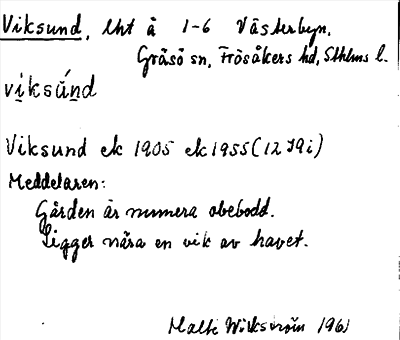 Viksund, lht å 1-6 Västerbyn,
Gräsö sn, Frösåkers hd, Sthlms l.
víksúnd
Viksund ek 1905 ek 1955 (12 J9i)
Meddelaren:
Gården är numera obebodd.
Ligger nära en vik av havet.
Malte Wikström 1961